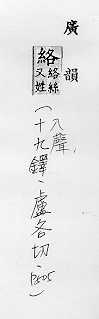 廣韻
絡絡絲
又姓
(入聲,
十九鐸,盧各切,p505)